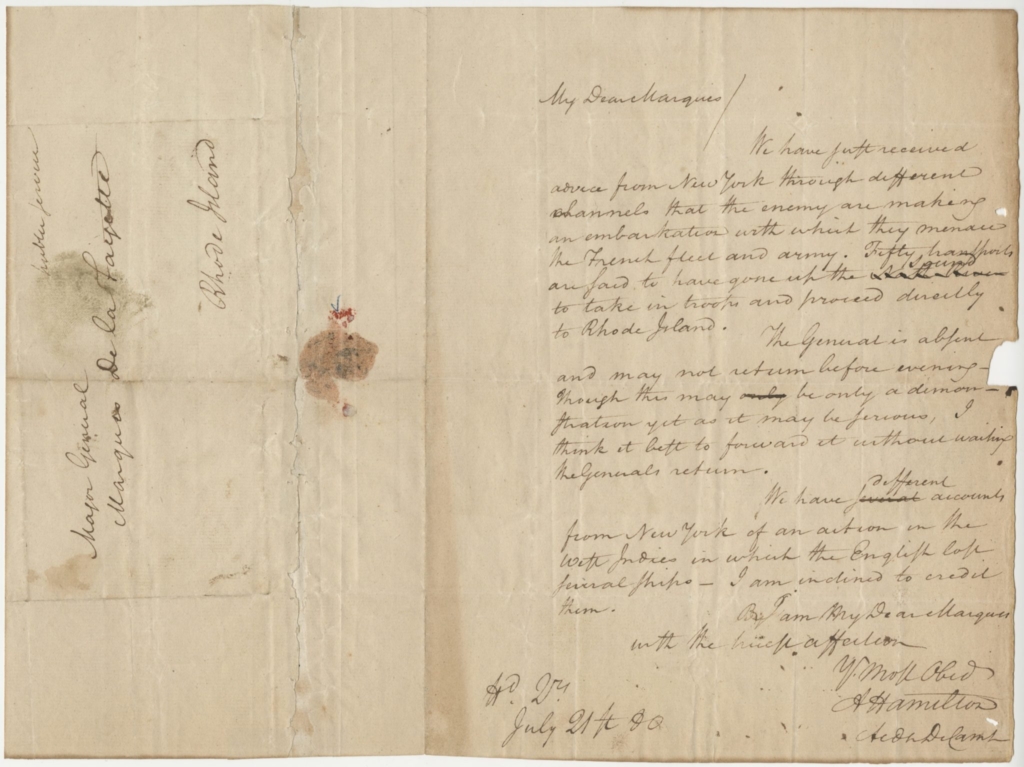 public service
Major General
Marquis De la Fayette
Rhode Island
My Dear Marquis /
We have just received
advice from New York through different
channels that the enemy are making
an embarkation with which they menace
the French fleet and army. Fifty transports
are said to have gone up the Sound
to take in troops and proceed directly
to Rhode Island.
The General is absent
and may not return before evening -
Though this may only be only a demon-
stration yet as it may be serious, I
think it best to forward it without waiting
the Generals return.
different
We have several accounts
from New York of an action in the
West Indies in which the English lost
several ships - I am inclined to credit
them.
I am My Dear Marquis
with the truest affection
Yr. Most Obed
A Hamilton
Aide De Camp
Hd. Qrs
July 21st 80